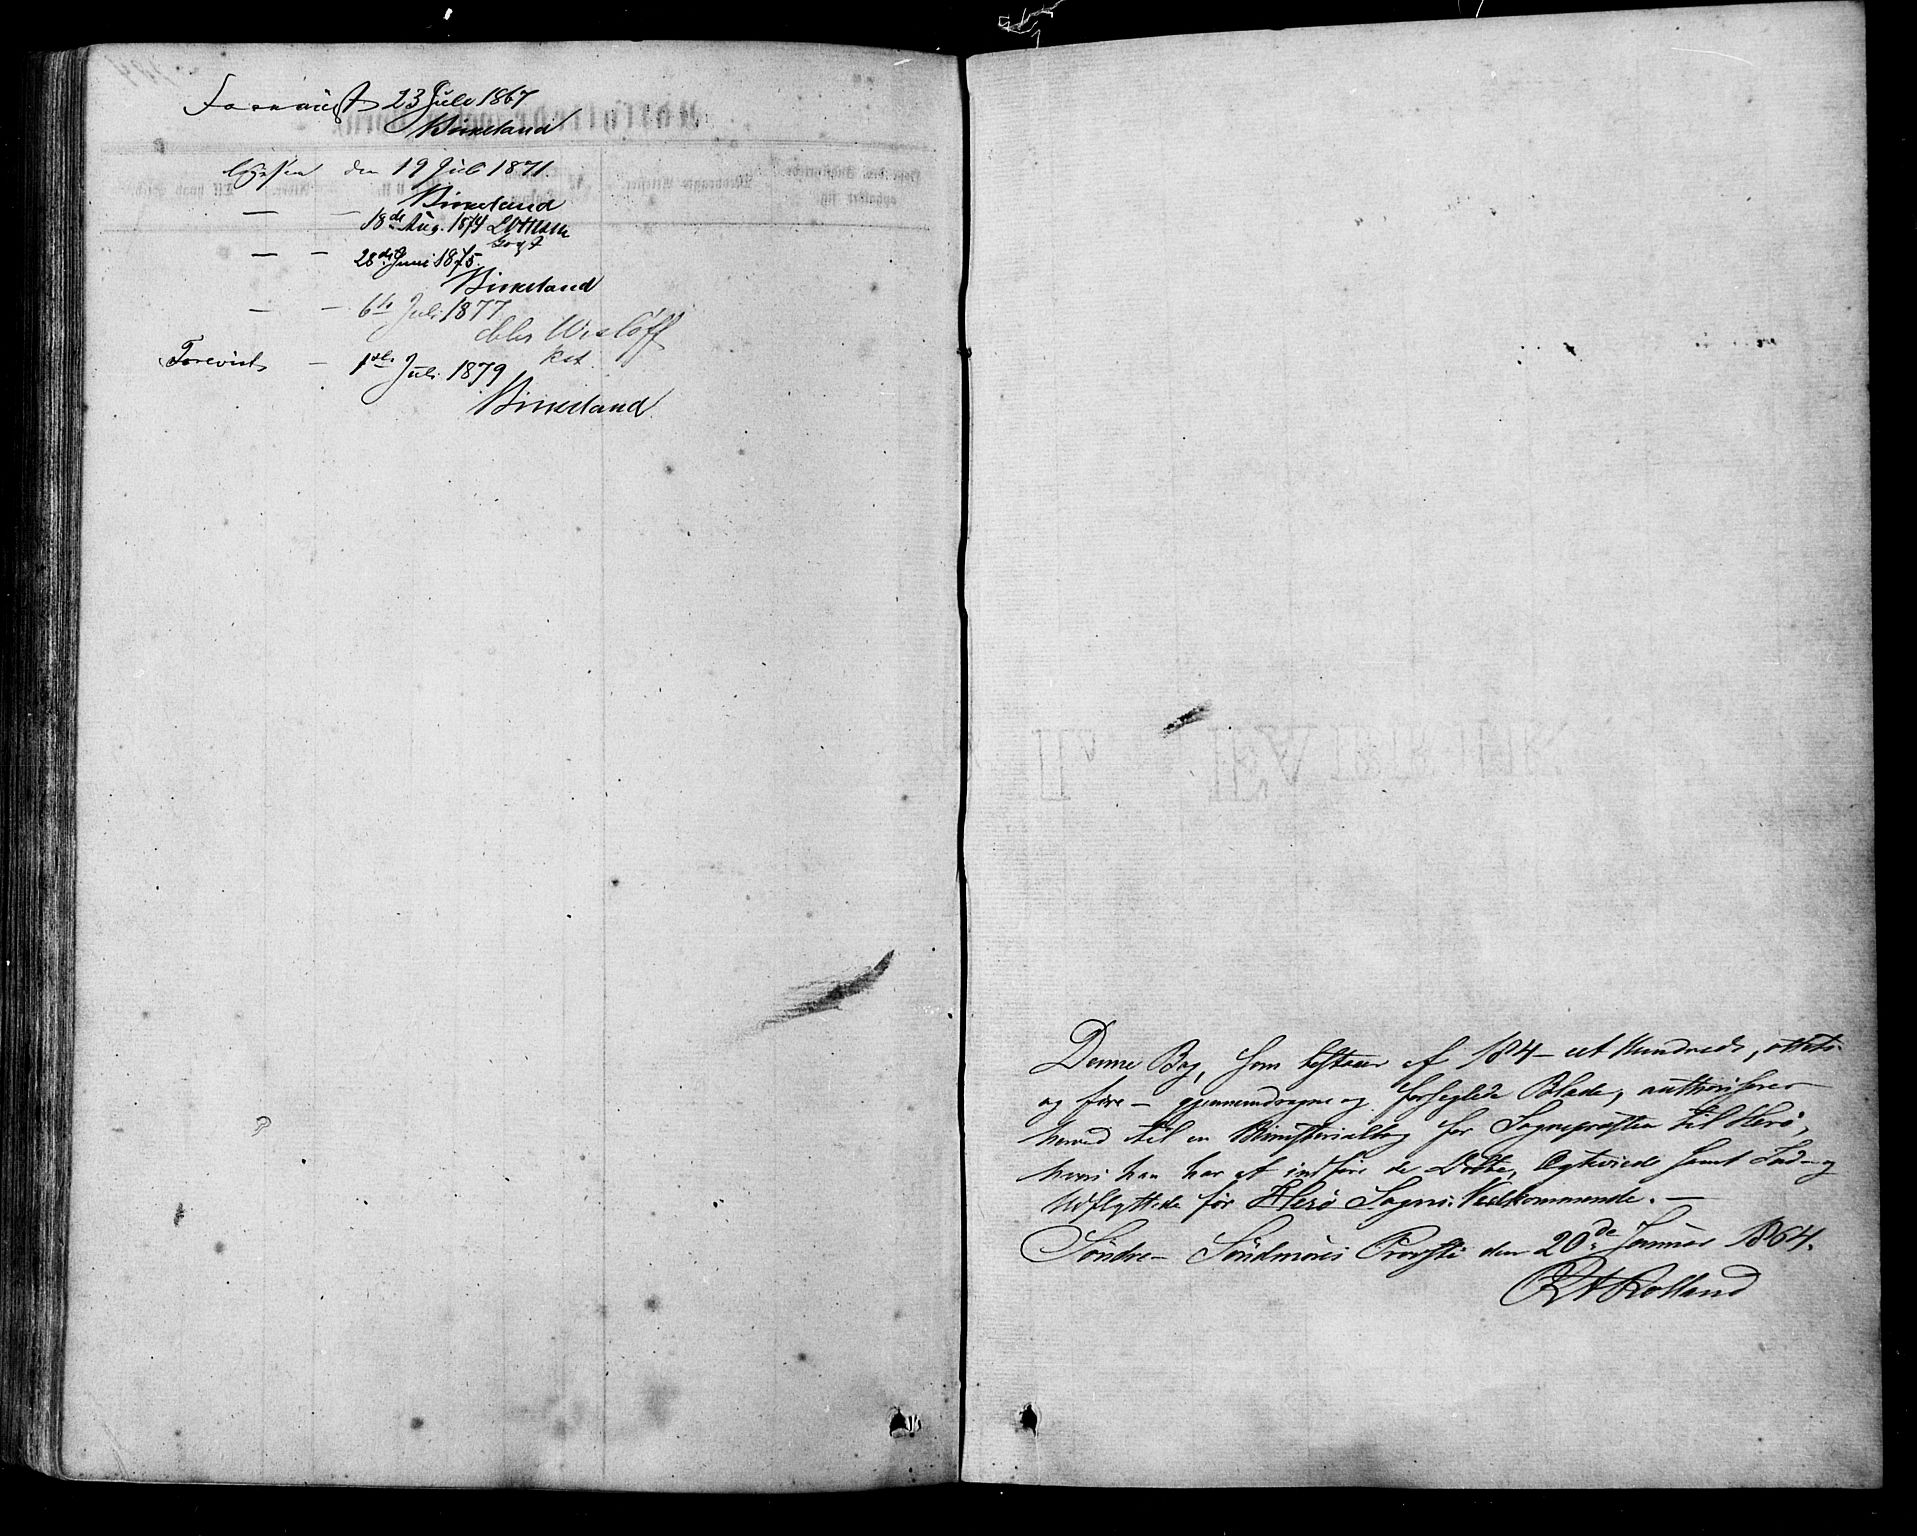 23 Juli 1867
Birkeland
den 19 Juli 1871.
Birkeland
— — 18de Aug. 1874
— — 28de Juni 1875.
Birkeland
— — 6te Juli 1877
Wisløff
kst.
Forevist — 1ste Juli 1879
Birkeland
Denne Bog, som bestaaer af 184 – eet Hundrede, otteti-
og fire – gjennemdragne og forseglede Blade, authoriseres
herved til en Ministerialbog for Sognepræsten til Herø,
hvori han har at indføre de Døbte, Ægteviede samt Ind- og
Udflyttede for Herø Sogns Vedkommende. —
Søndre – Søndmøres Provsti den 20de Januar 1864.